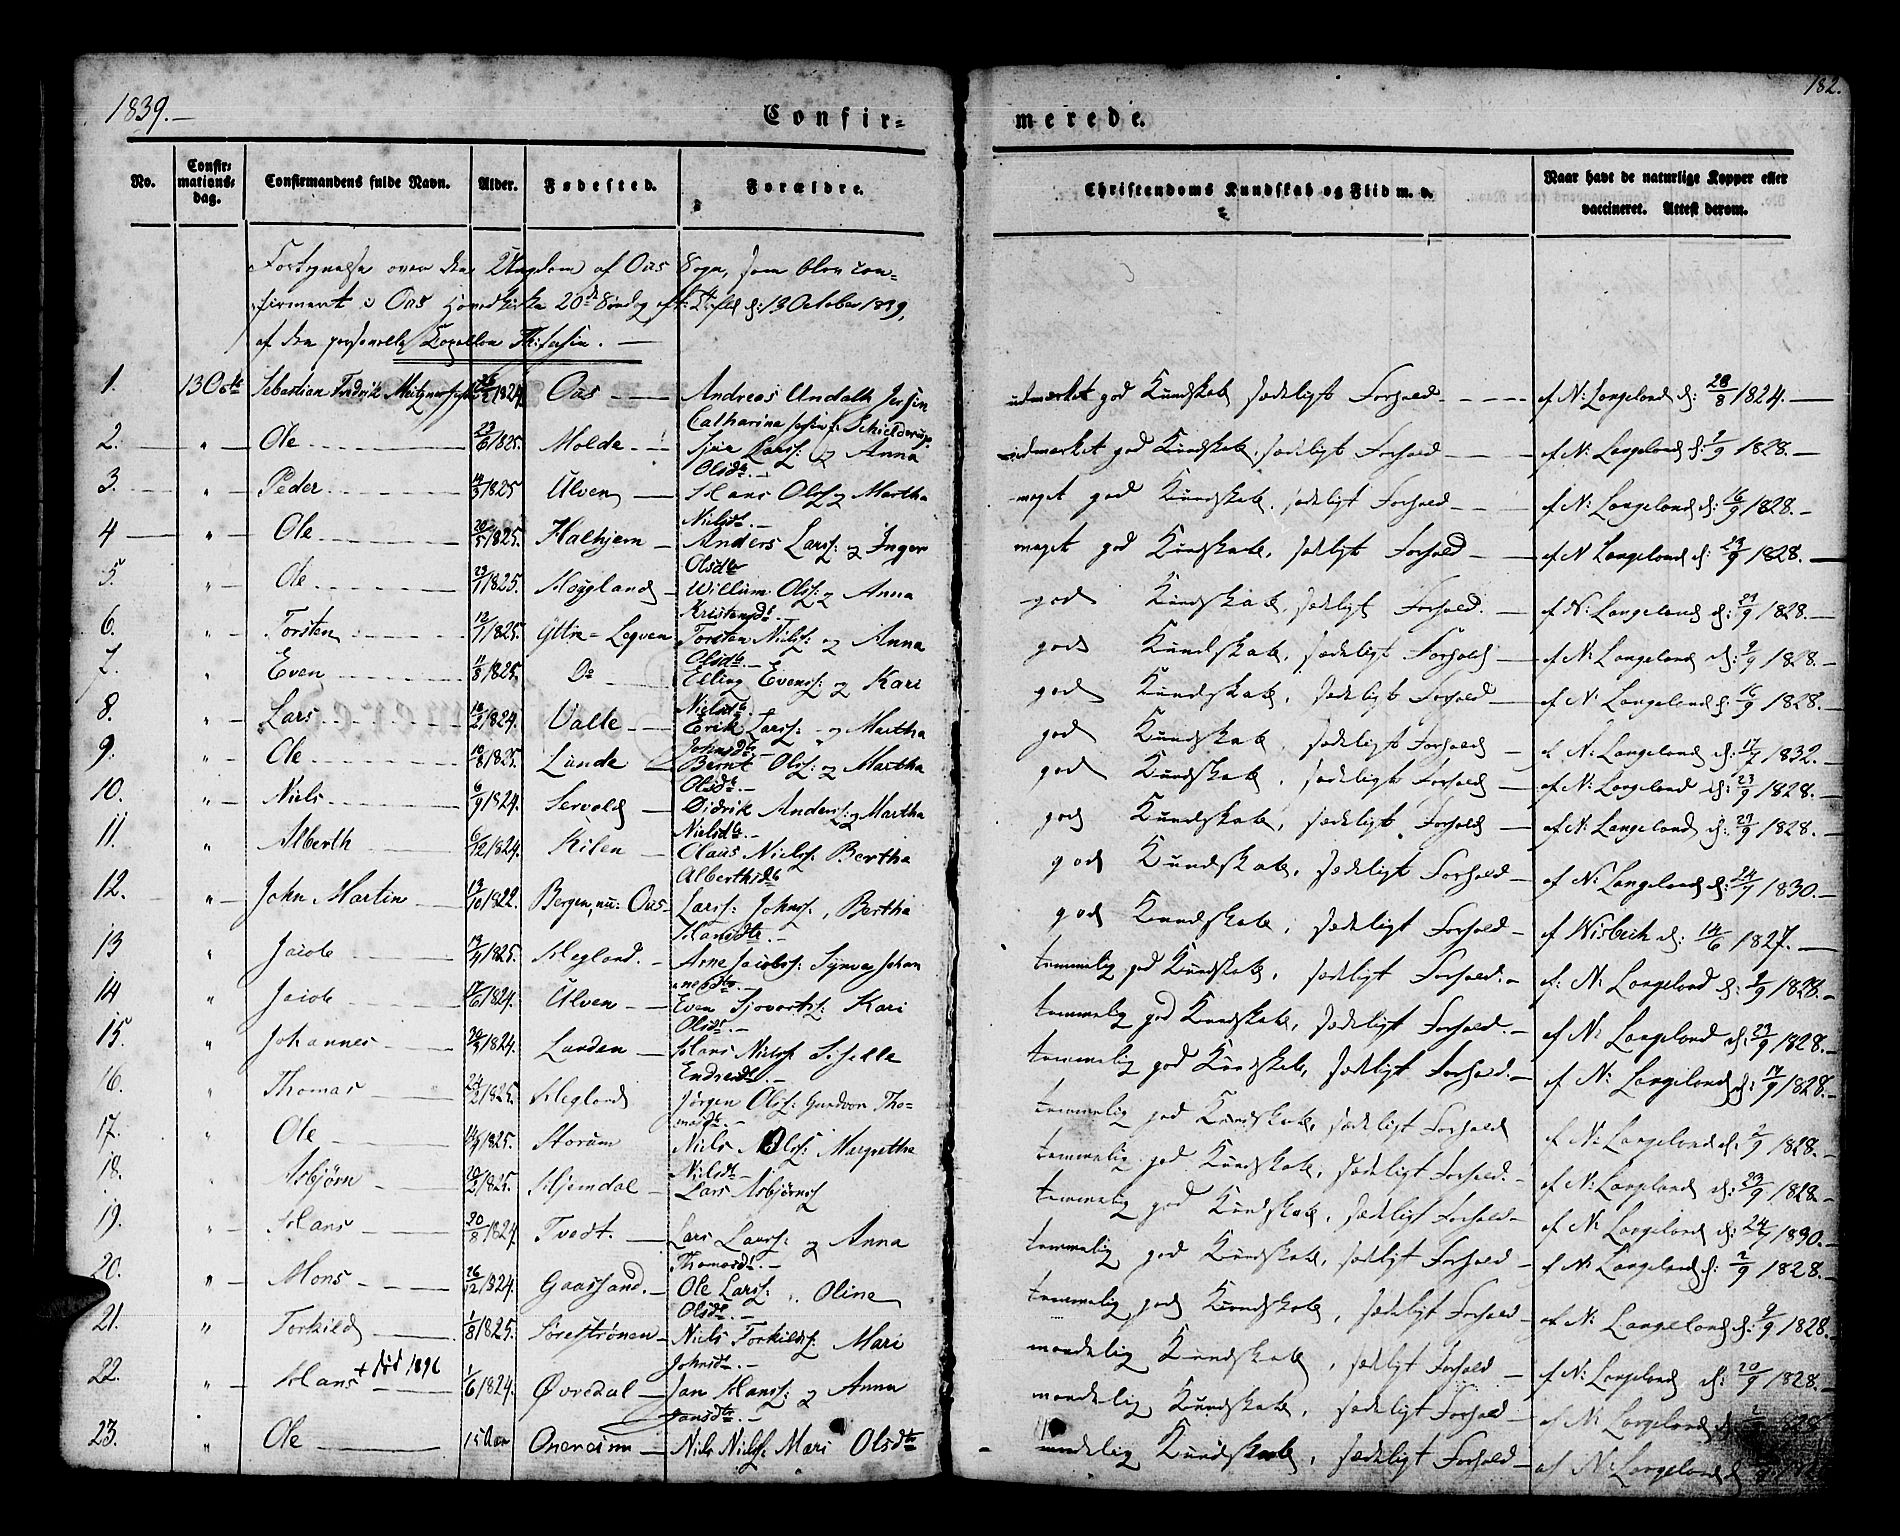 1839.
182.
Confir=
merede.
No.
Confir=
mations=
dag.
Confirmandens fulde Navn.
Alder.
Fødested.
Forældre.
Christendoms Kundskab og Flid m. v.
Naar havt de naturlige Kopper eller
vaccineret. Attest derom.
Fortegnelse over den Ungdom af Ous Sogn, som blev con=
firmeret i Ous Hovedkirke 20de Søndag eft: d: 13 October 1839,
af den personelle Capellan
1. 13 Octb Sebastian Fredrik 1824 Ous Andreas Undall Jersin
Catharina f. Schielderup. udmærket god Kundskab sædeligt Forhold af N: Langeland d: 28/8 1824.
2. " Ole 23/6 1825. Molde Sjur Larss: og Anna
Olsdt. udmærket god Kundskab, sædeligt Forhold af N: Langeland d: 2/9 1828.
3. " Peder 14/3 1825 Ulven Hans Olss og Martha
Nielsdt. meget god Kundskab, sædeligt Forhold af N: Langeland d: 16/9 1828.
4 " Ole 20/5 1825. Halhjem Anders Larss: og Inger
Olsdtr meget god Kundskab, sædeligt Forhold af N Langeland d: 23/9 1828.
5. " Ole 29/1 1825. Moggland Willum Olss: og Anna
Kristensdt. god Kundskab, sædeligt Forhold. af N: Langeland d: 1828.
6. " Torsten 12/7 1825. Yttre = Legven Torsten Nilss: og Anna
Olsdtr. god Kundskab, sædeligt Forhold af N: Langeland d: 2/9 1828.
7. " Even 11/8 1825. Do Elling Evenss: og Kari
Nielsdt. god Kundskab, sædeligt Forhold af N: Langeland d: 16/9 1828.
8. " Lars 18/2 1824. Valle Erik Larss: og Martha
Johnsdtr. god Kundskab, sædeligt Forhold af N: Langeland d: 1832.
9. " Ole 10/8 1825. Lunde Bernt Olss: og Martha
Olsdt. god Kundskab, sædeligt Forhold af N: Langeland d: 23/9 1828.
10. " Niels 6/9 1824. Sørvold Didrik Anderss: og Martha
Nielsdt. god Kundskab, sædeligt Forhold af N: Langeland d: 1828.
11. " Alberth 6/12 1824. Kilen Olaus Nielss: Bertha
Alberthsdt god Kundskab, sædeligt Forhold af N: Langeland d: 24/9 1830.
12. " John Martin 13/10 1822. Bergen, nu: Ous Larss: Johnss, Bertha
Hansdtr. god Kundskab, sædeligt Forhold af Wisbech d: 14/6 1827.
13 " Jacob 1825. Hegland. Arne Jacobss: Synve Johan
nesdtr temmelig god Kundskab, sædeligt Forhold. af: N: Langeland d: 9/9 1828.
14 " Jacob 17/6 1824. Ulven Even Sjovortss: Kari
Olsdt. temmelig god Kundskab, sædeligt Forhold. af N: Langeland d: 23/9 1828.
15. " Johannes 1824. Lunden Hans Nielss: Sisselle
Endresdt. temmelig god Kundskab, sædeligt Forhold. af N: Langeland d: 17/9 1828.
16. " Thomas 24/2 1825. Hegland Jörgen Olss: Gundvor Tho=
masdt. temmelig god Kundskab, sædeligt Forhold af N: Langeland d: 2/9 1828.
17. " Ole 1825. Storum Niels Olss: Margrethe
Nilsdtr temmelig god Kundskab, sædeligt Forhold. af N: Langeland d: 23/9 1828
18. Asbjørn 1825. Skjemdal Lars Asbjørnss temmelig god Kundskab, sædeligt Forhold af N: Langeland d: 1830.
19. " Hans 20/8 1824. Tvedt. Lars Larss: og Anna
Thomasdt. temmelig god Kundskab, sædeligt Forhold af N: Langeland d: 2/9 1828.
20. " Mons 26/12 1824. Gaassand. Ole Larss: Oline
Olsdt. temmelig god Kundskab, sædeligt Forhold af N: Langeland d: 9/9 1828.
21. " Torkild 1/8 1825. Sørestrønen Niels Torkildss: Mari
Johnsdt. maadelig Kundskab, sædeligt Forhold af N: Langeland d: 20/9 1828.
22. " Hans + död 1896 1/6 1824. Øvredal Jan Hanss: og Anna
Jansdtr. maadelig Kundskab, sædeligt Forhold af N: Langeland 1828
23. " Ole 15 Aar Niels Nielss: Mari Olsdtr maadelig Kundskab, sædeligt Forhold af N: Langeland